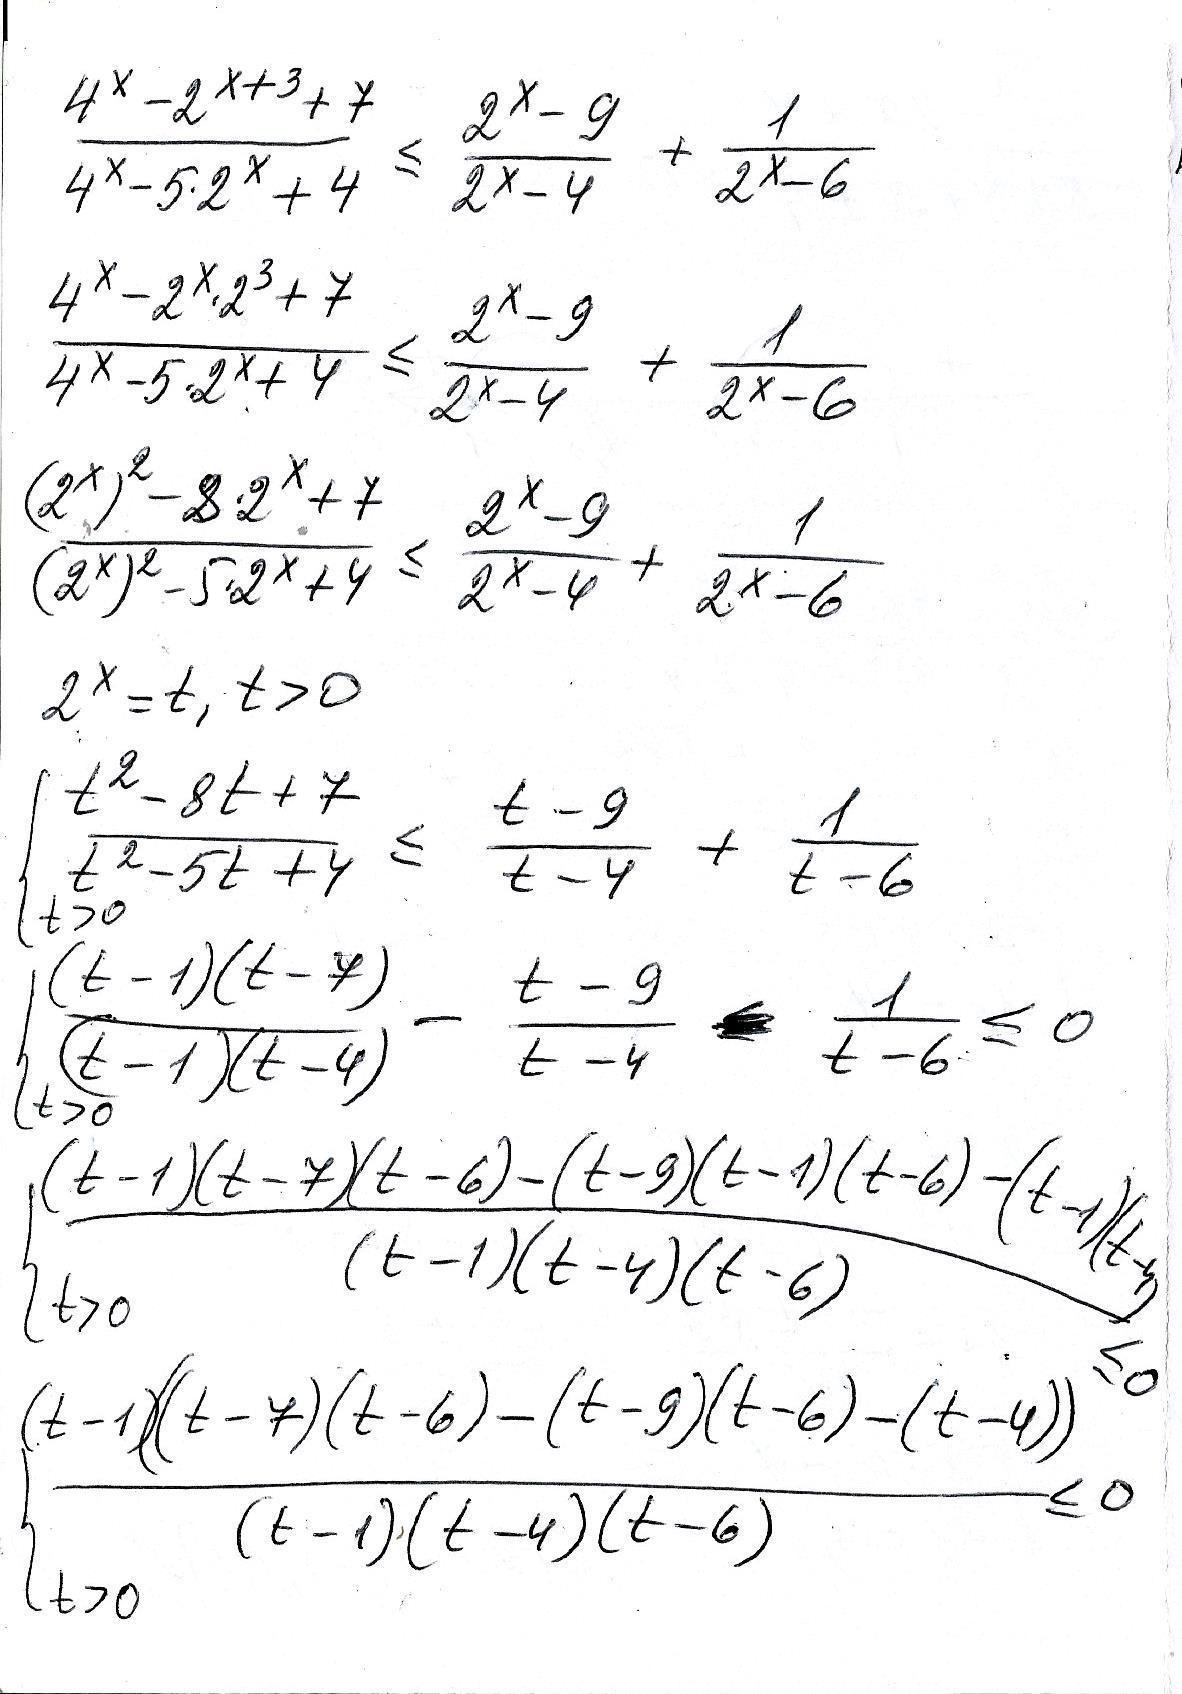 (4^x - 2^(x+3) + 7)/(4^x - 5·2^x + 4) ≤ (2^x - 9)/(2^x - 4) + 1/(2^x - 6)
(4^x - 2^x·2^3 + 7)/(4^x - 5·2^x + 4) ≤ (2^x - 9)/(2^x - 4) + 1/(2^x - 6)
((2^x)^2 - 8·2^x + 7)/((2^x)^2 - 5·2^x + 4) ≤ (2^x - 9)/(2^x - 4) + 1/(2^x - 6)
2^x = t, t > 0
{ (t^2 - 8t + 7)/(t^2 - 5t + 4) ≤ (t - 9)/(t - 4) + 1/(t - 6)
t > 0
{ ((t - 1)(t - 7))/((t - 1)(t - 4)) - (t - 9)/(t - 4) - 1/(t - 6) ≤ 0
t > 0
{ ((t - 1)(t - 7)(t - 6) - (t - 9)(t - 1)(t - 6) - (t - 1)(t - 4))/((t - 1)(t - 4)(t - 6)) ≤ 0
t > 0
{ ((t - 1)((t - 7)(t - 6) - (t - 9)(t - 6) - (t - 4)))/((t - 1)(t - 4)(t - 6)) ≤ 0
t > 0